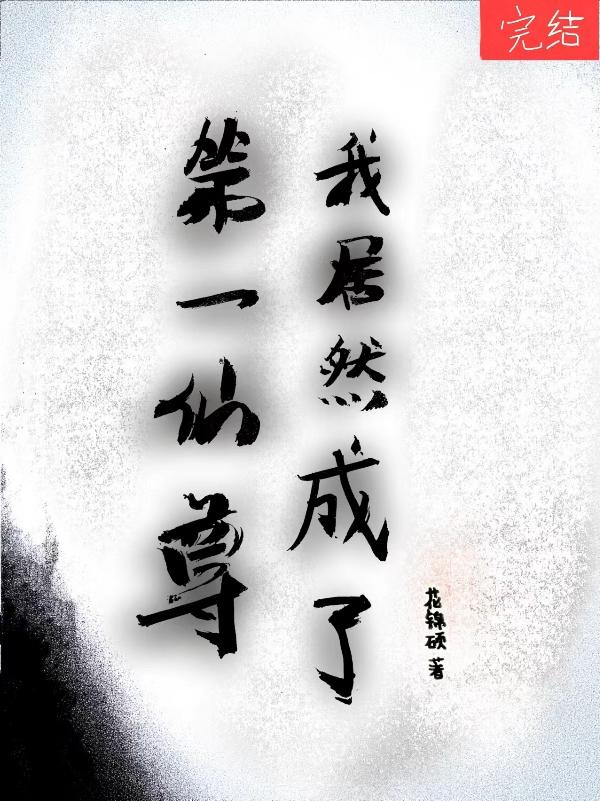 完结
我居然成了
第一仙尊
花锦硕 著